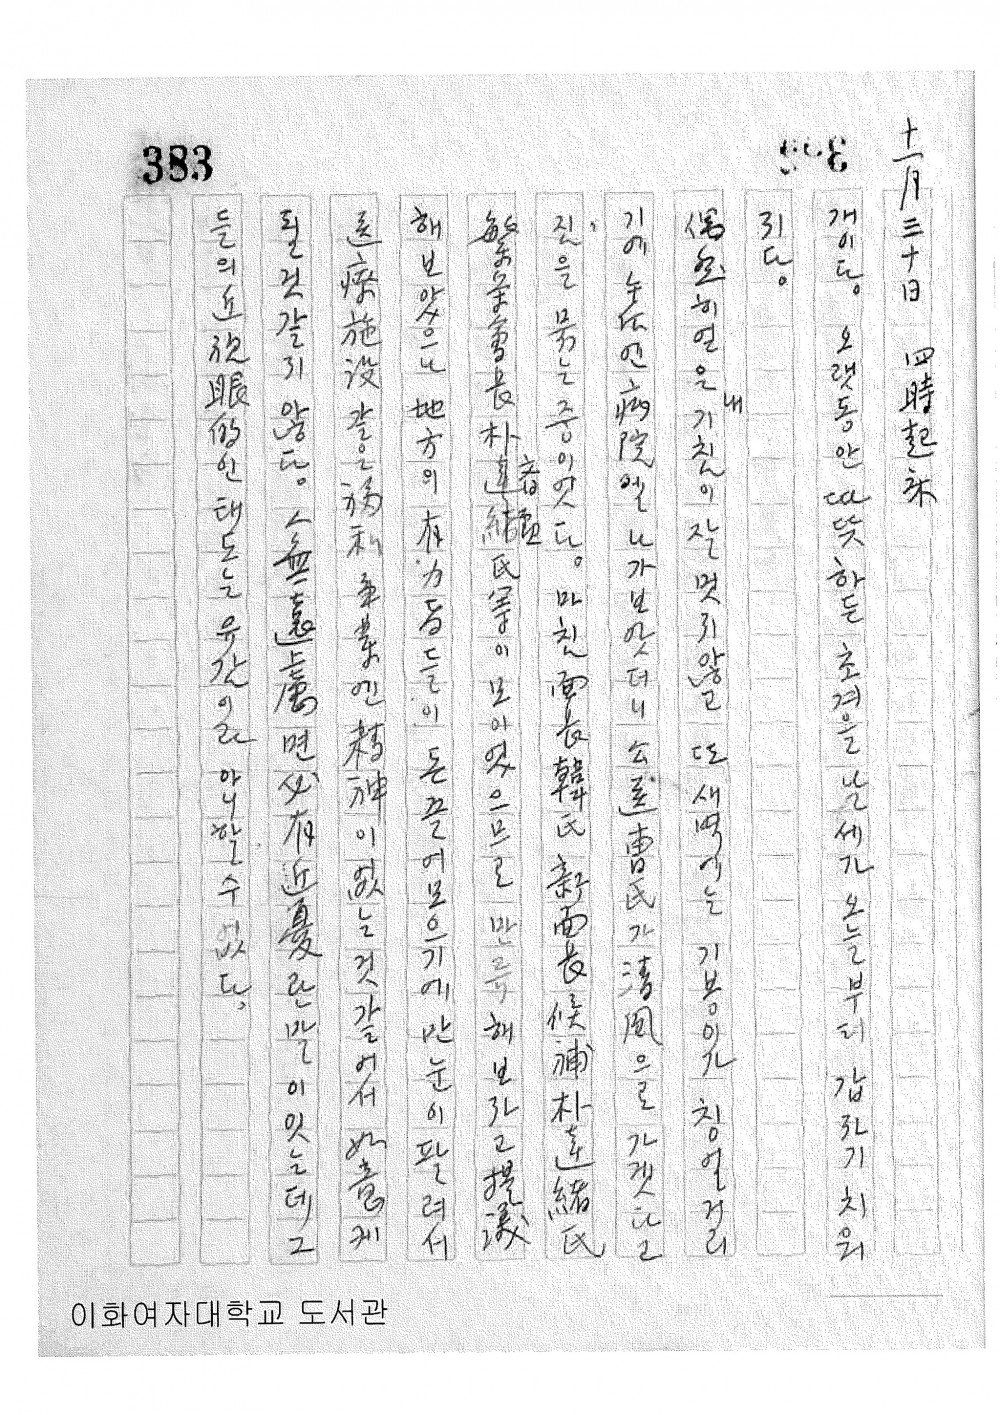 383
十一月三十日 四時起床
개이다. 오랫동안 따뜻하든 초겨울 날세가 오늘부터 갑자기 치워
지다.
偶然히 얻은 내 기침이 잘 멋지 않고 또 새벽에는 기봉이가 칭얼거리
기에 病院엘 나가보앗더니 公医曺氏가 淸風으로 가겟다고
짐을 묶는 중이엿다. 마친 面長韓氏 新面長候補 朴達緖氏
繁榮會長 朴 氏等이 모이엿으므로 만류해보라고 提議
해보앗으나 地方의 有力者들이 돈끌어모으기에만 눈이 팔려서
医療施設 같은 福利事業엔 精神이 없는것 갈어서 如意케
될것 갈지 않다. 人無遠慮면 必有近憂란 말이 잇는데 그
들의 近視眼的인 태도는 유감이라 아니할 수 없다.
이화여자대학교 도서관